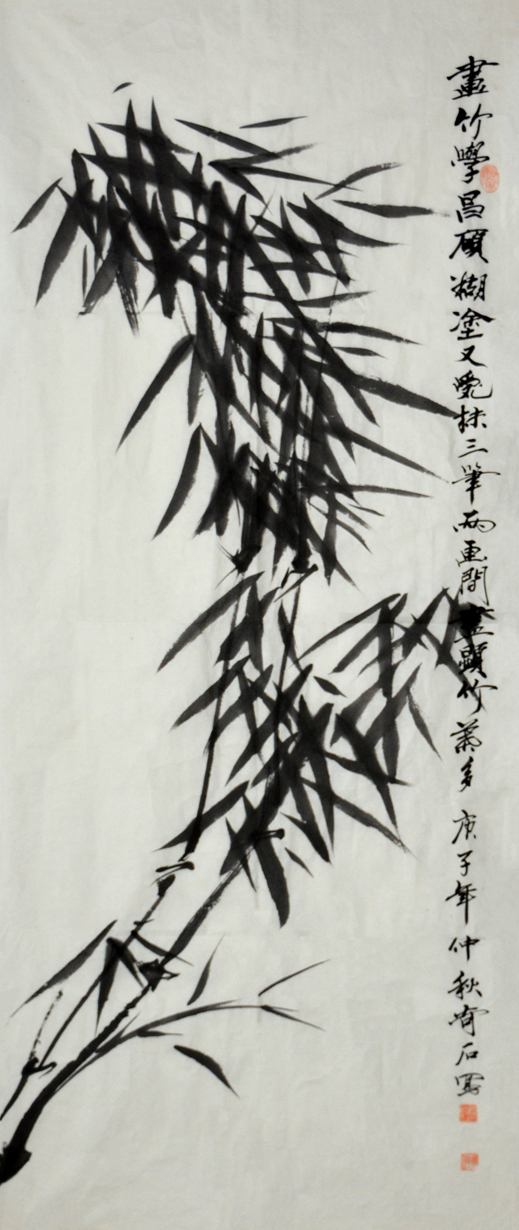 畫竹學昌碩糊塗又亂抹三筆兩画間盡顯竹葉多庚子年仲秋奇石寫